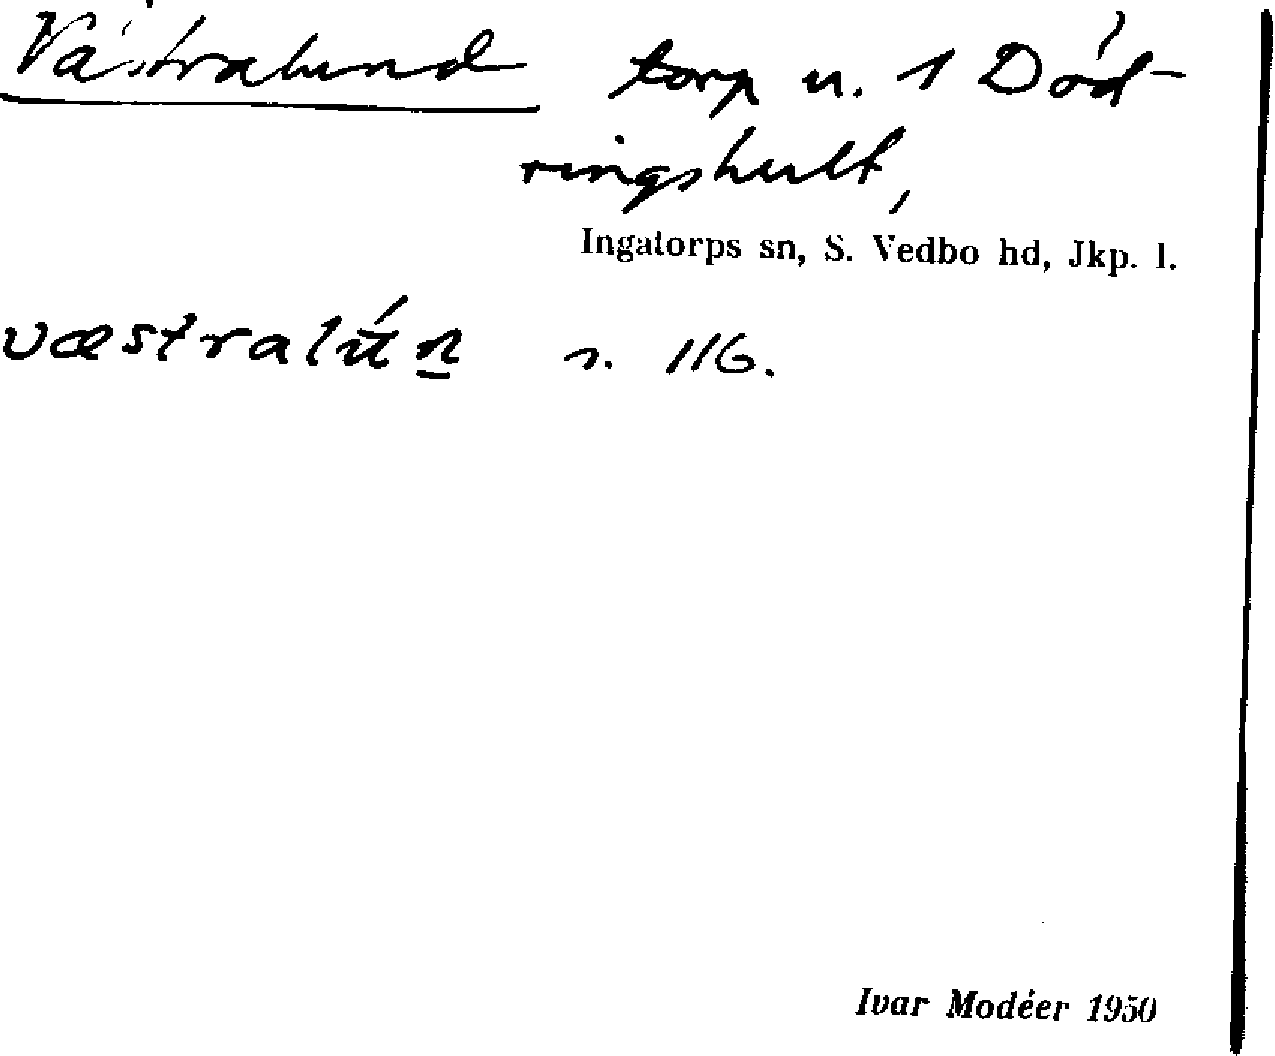 Västralund torp u. 1 Död-
ringshult,
Ingatorps sn, S. Vedbo hd, Jkp. l.
væstralún s. 116.
Ivar Modéer 1950